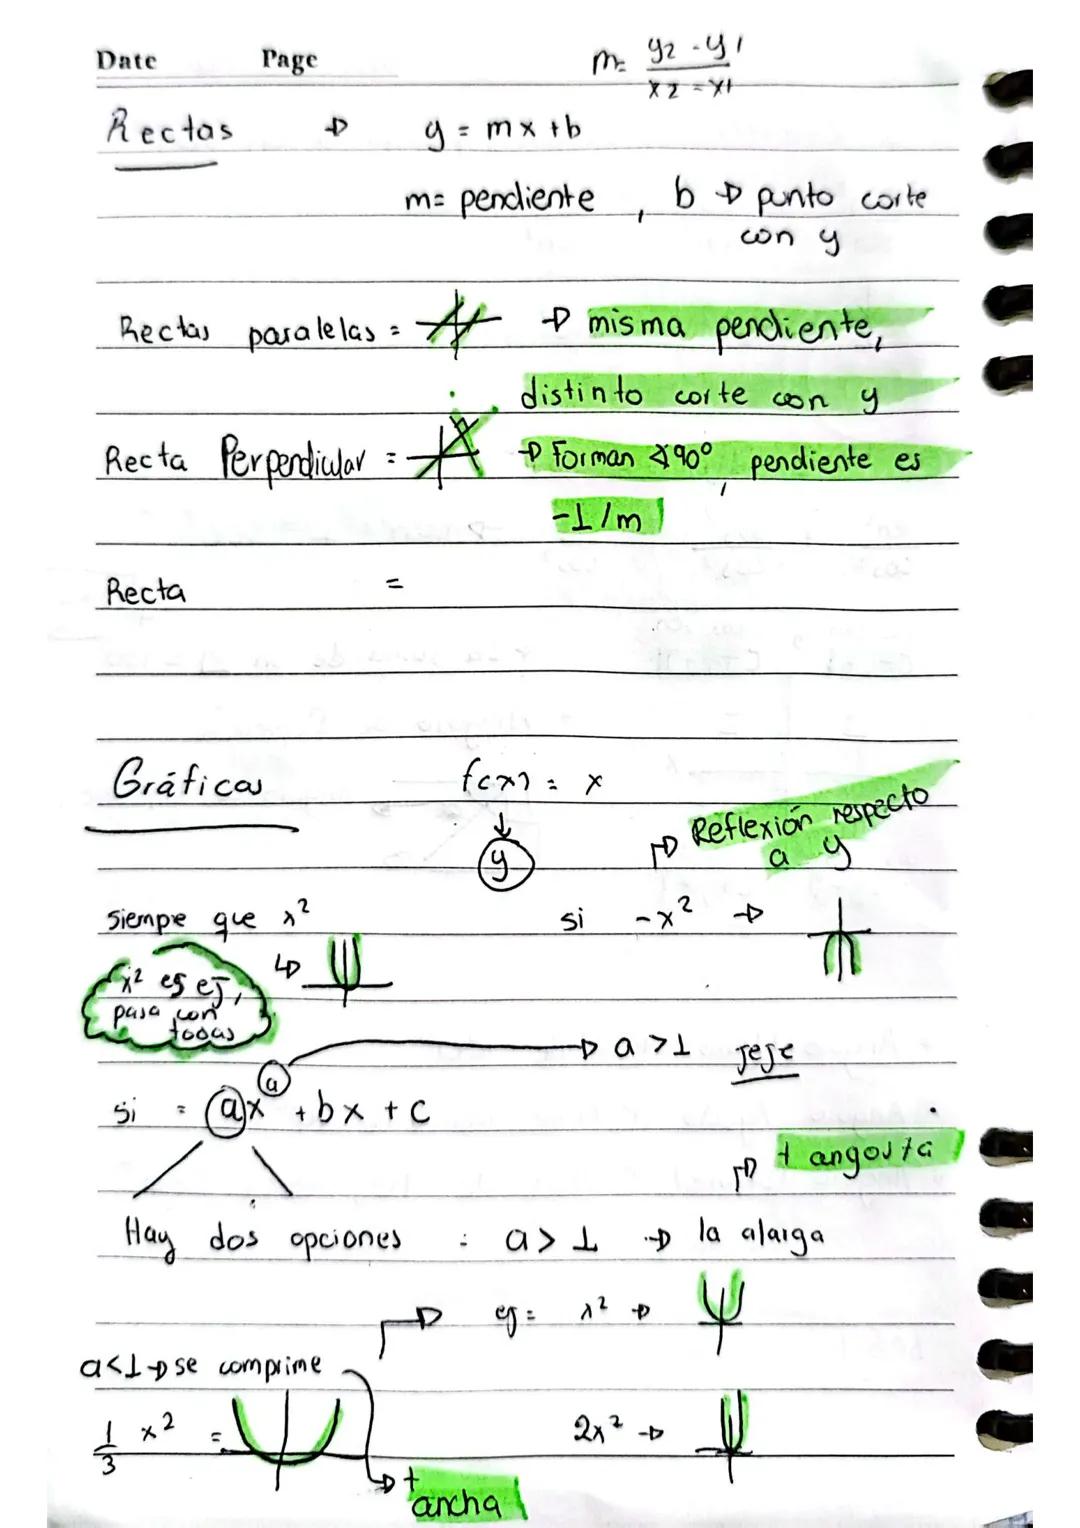 Date Page m= y2 - y1
x2 = x1
Rectas → y = mx + b
m= pendiente , b → punto corte
con y
Rectas paralelas = → misma pendiente,
distinto corte con y
Recta Perpendicular = → Forman ∡90°, pendiente es
-1/m
Recta =
Gráficas f(x) = x
y
→ Reflexión respecto
a y
siempre que x²
si -x² →
x² es ej,
pasa con
todas
→ a >1 jeje
a
si = ax + bx + c
→ + angosta
Hay dos opciones : a > 1 → la alarga
→ ej = x² →
a<1 → se comprime
1/3 x² =
2x² →
→ +
ancha